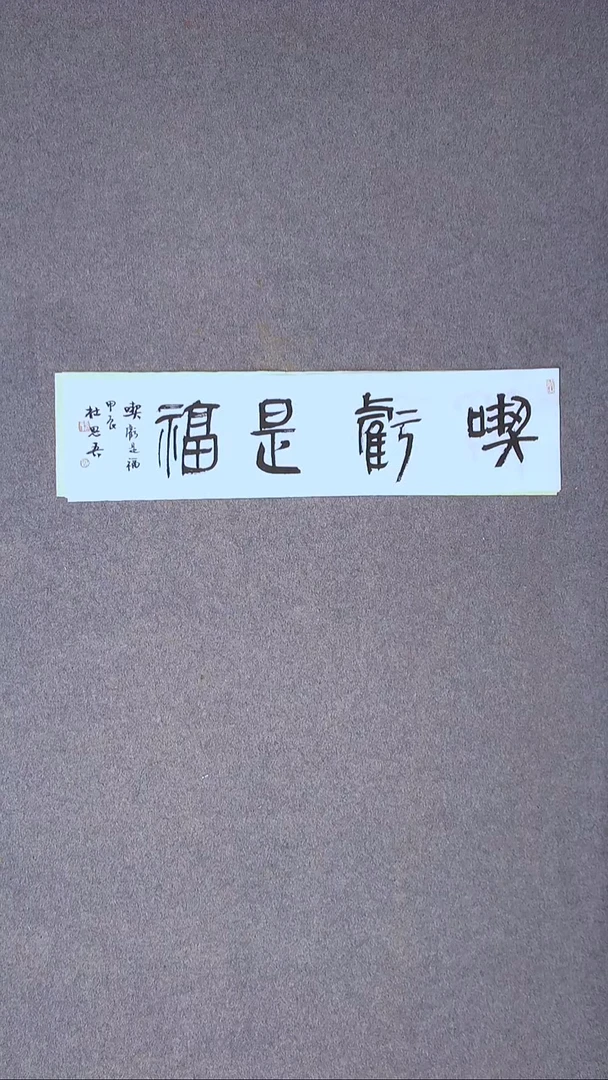 喫虧是福
喫虧是福
甲辰
杜思吾